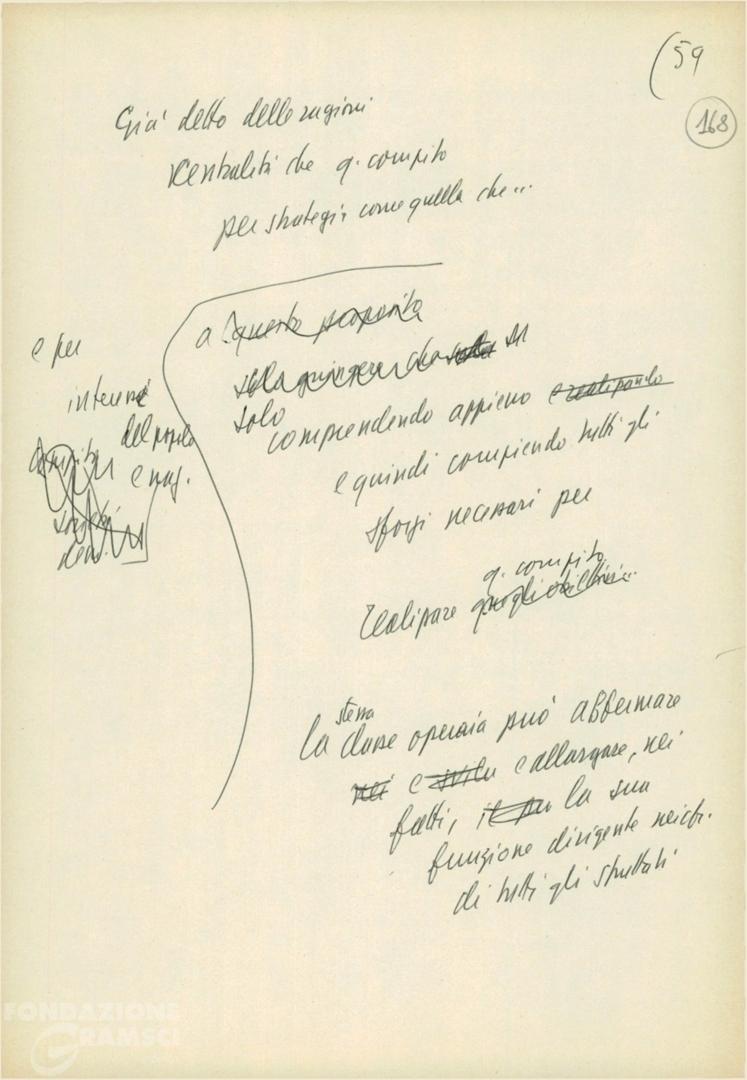 (59
168
Già detto delle ragioni
centralità che q. compito
per strategia come quella che...
a questo proposito
e per
interessi
del popolo
e naz.
compito
solo
comprendendo appieno e realizzando
e quindi compiendo tutti gli
sforzi necessari per
q. compito
realizzare
stessa
la classe operaia può affermare
nei e e allargare, nei
fatti, il la sua
funzione dirigente nei cfr.
di tutti gli sfruttati
FONDAZIONE
GRAMSCI